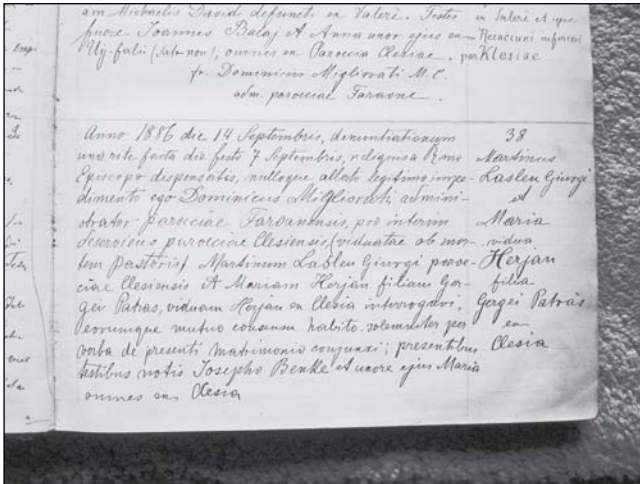 am Michaelis David defuncti ex Valere. Testes
fuere Joannes Balaj et Anna uxor ejus ex
Uj-falu omnes ex Paroecia Clesiae.
fr. Dominicus Migliorati M.C.
adm. paroeciae Faraone.
ex Valere et
Recaciuni inferiori
par Klesiae
Anno 1886 die 14 Septembris, denuntiationum
una rite facta die festo 7 Septembris, reliquis a Rmo
Episcopo dispensatis, nulloque allato legitimo impe-
dimento ego Dominicus Migliorati admini-
strator paroeciae Faroanensis, pro interim
deserviens paroeciae Clesiensis, (viduatae ob mor-
tem pastoris) Martinum Lasleu Giurgi paroe-
ciae Clesiensis et Mariam Herjan filiam Ger-
gei Patras, viduam Herjan ex Clesia interrogavi,
eorumque mutuo consensu habito solemniter per
verba de presenti matrimonio conjunxi; presentibus
testibus notis Josepho Benke et uxore ejus Maria
omnes ex Clesia
38
Martinus
Lasleu Giurgi
et
Maria
vidua
Herjan
filia
Gergei Patrás
ex
Clesia